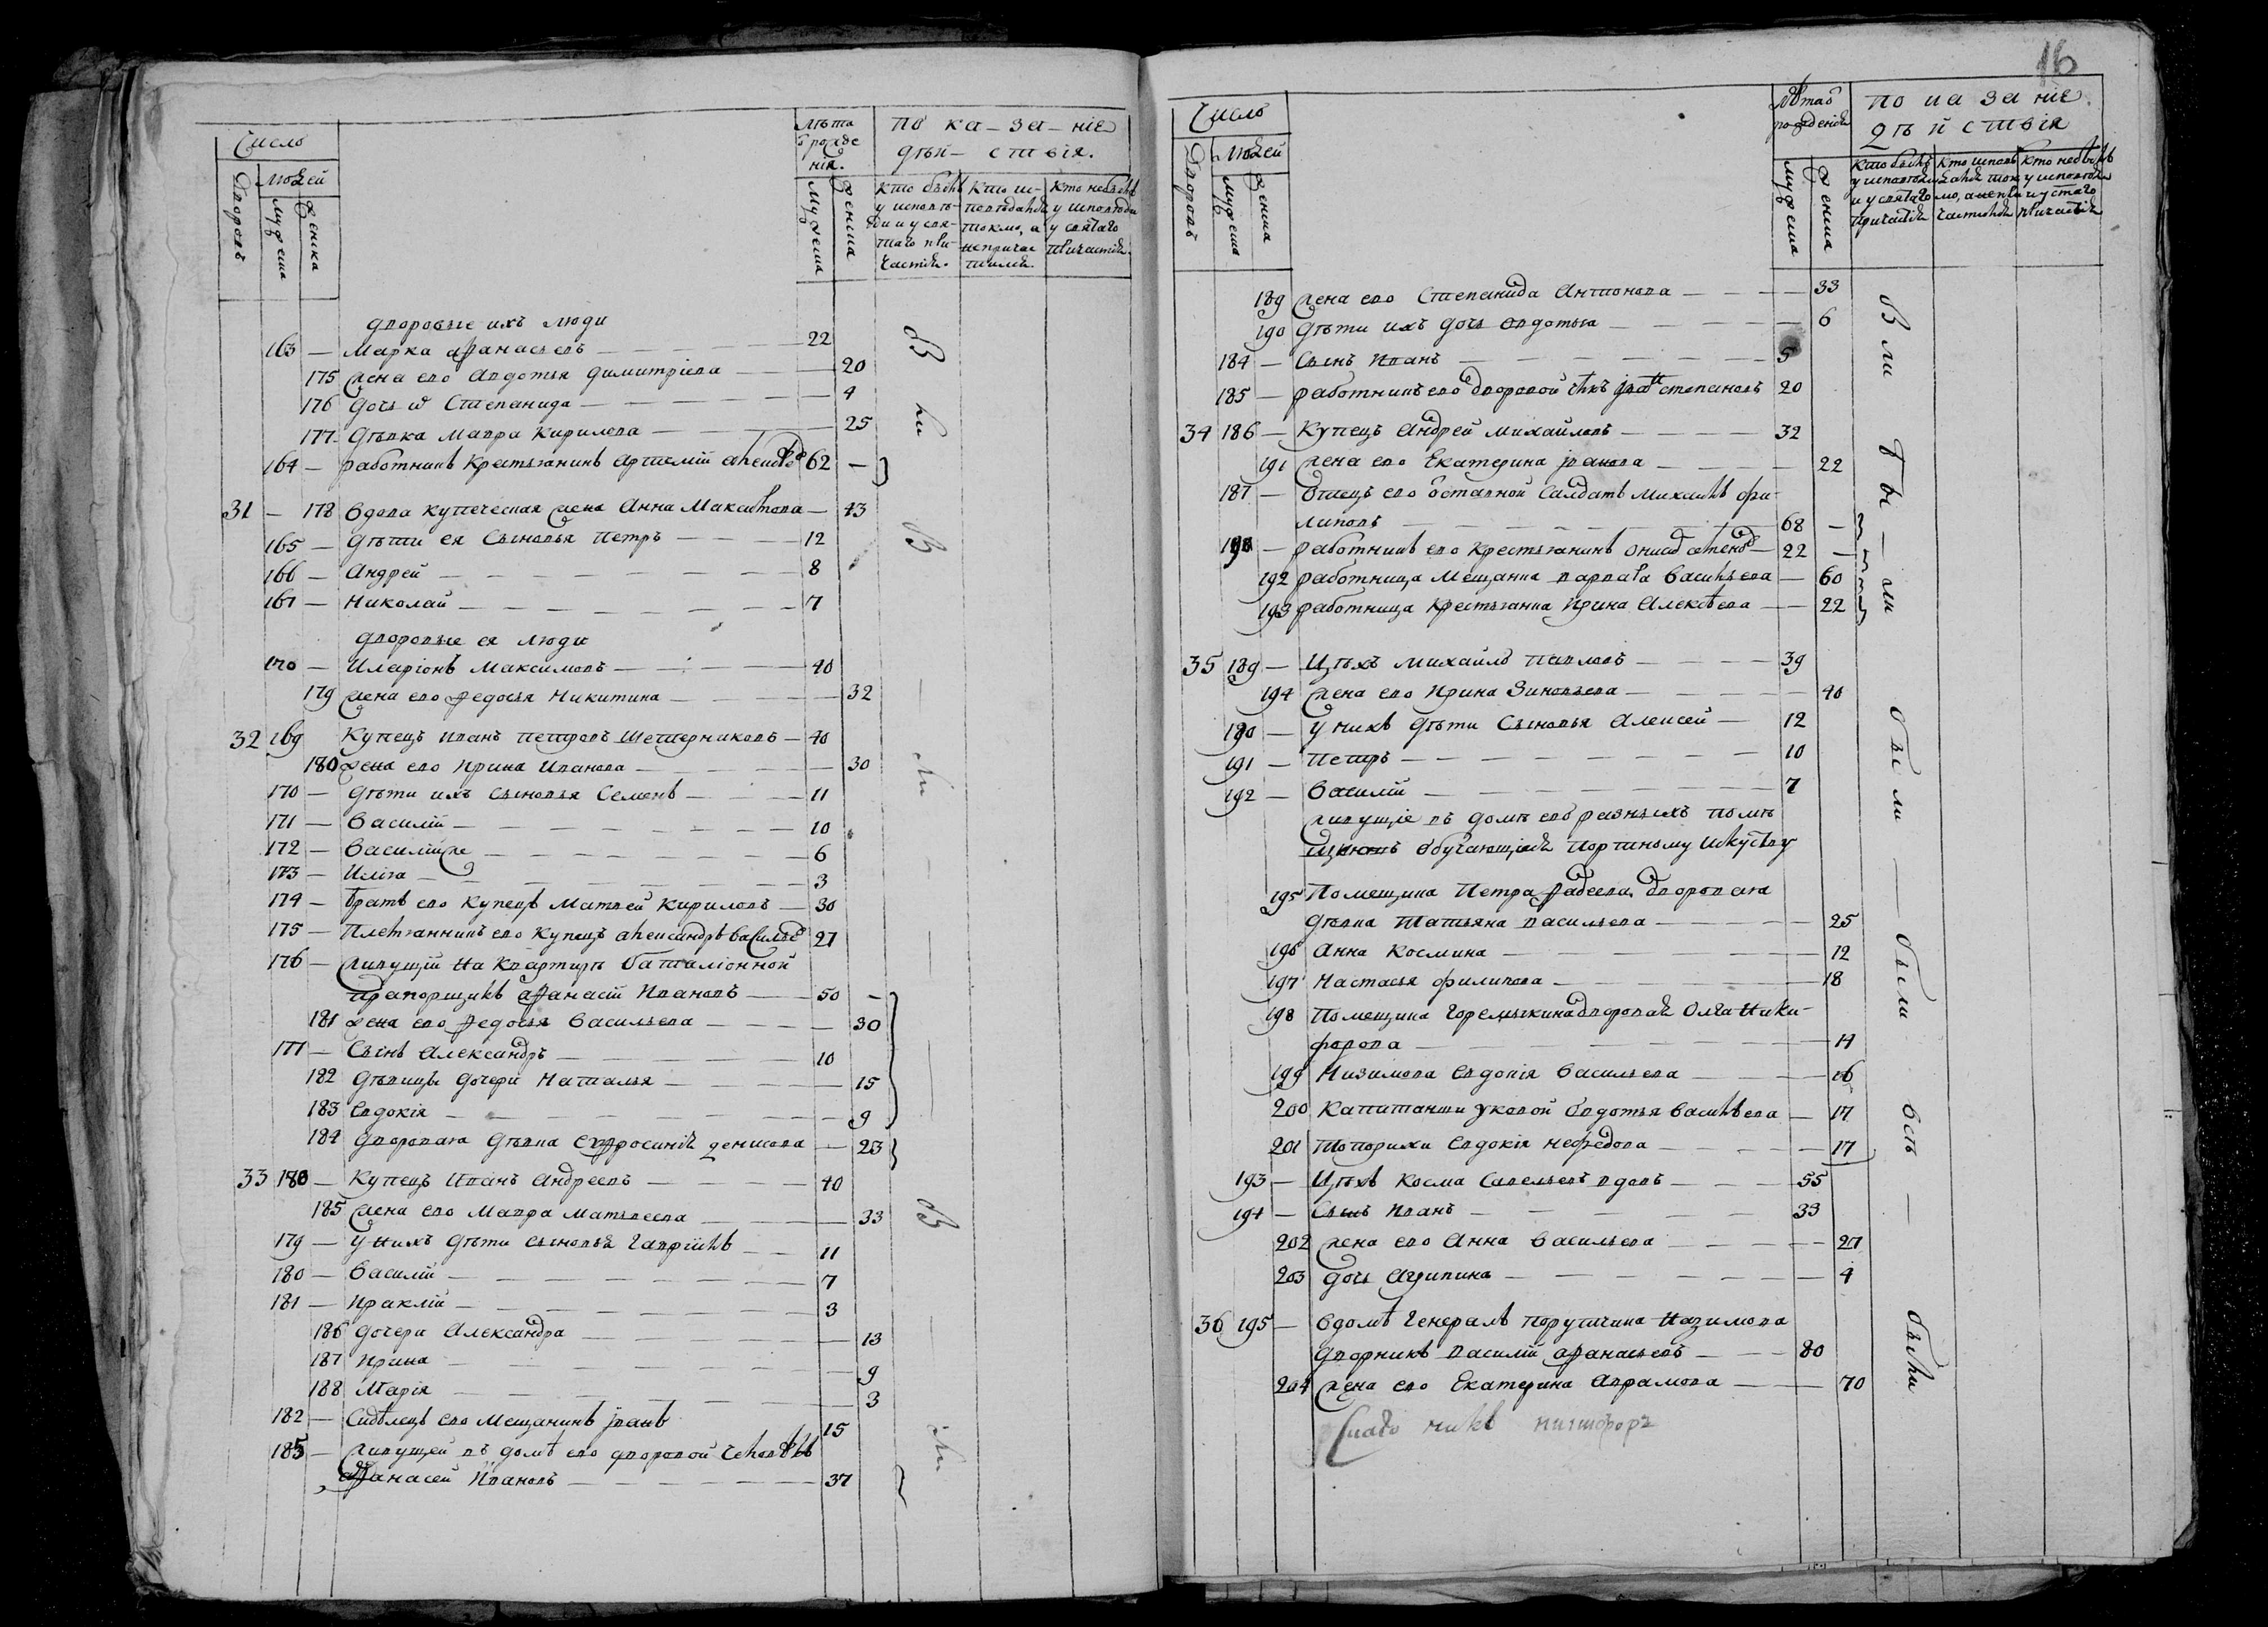 Число
Дворовъ
Людей
Мужеска
Женска
Лѣта
ѿ рожде
нія.
Мужеска
Женска
по ка-за-ніе
дѣй-ствія.
Кто былъ
у исповѣ-
ди и у свя-
таго при-
частія.
Кто ис-
поведался
токмо, а
не причас
тился
Кто небылъ
у исповѣди
у святаго
причастія.
дворовые ихъ люди
163 — Марка афанасьевъ — 22
175 жена ево Авдотья димитріева — 20
176 дочь ѿ Степанида — 4
177 дѣвка Мавра Кирилева — 25
164 — работникъ Крестьянинъ Артемій 62 —
31 — 178 вдова купеческая жена Анна — 43
165 — дѣти ея Сыновья Петръ — 12
166 — Андрей — 8
167 — Николай — 7
дворовые ея люди
170 — Иларіонъ Максимовъ — 40
179 жена ево Федосья Никитина — 32
32 169 Купецъ Иванъ петровъ Шетерниковъ — 40
180 жена ево Ирина Иванова — 30
170 — дѣти ихъ сыновья Семенъ — 11
171 — Василій — 10
172 — Василій же — 6
173 — Илія — 3
174 — братъ ево Купецъ Матвей Кириловъ — 30
175 — Племянникъ ево Купецъ александръ Васильев 27
176 — живущій на квартирѣ баталіонной
прапорщикъ афанасій Ивановъ — 50 —
181 жена ево Федосья Васильева — 30
177 — Сынъ Александръ — 10
182 дѣвицы дочери Наталья — 15
183 Евдокія — 9
184 дворовая дѣвка Ефросинія денисова — 23
33 180 — Купецъ Иванъ Андреевъ — 40
185 жена ево Мавра Матвеева — 33
179 — у нихъ дѣти сыновья Гавріилъ — 11
180 — Василій — 7
181 — Ираклій — 3
186 дочери Александра — 13
187 Ирина — 9
188 Марія — 3
182 — Сиделецъ ево мещанинъ іванъ 15
183 — живущей въ домѣ ево дворовой человѣкъ
афанасей Ивановъ — 37
16
Число
Дворовъ
Людей
Мужеска
Женска
лѣта ѿ
рожденія
мужеска
женска
по ка за ніе
дѣй ствія
Кто былъ
у исповеди
и у святаго
причастія
Кто исповѣ
дался ток
мо, а непри
частился
Кто небылъ
у исповѣди
и у стаго
причастія
189 жена ево Степанида Антонова — 33
190 дѣти ихъ дочь Евдотья — 6
184 — Сынъ Иванъ — 5
185 — работникъ ево дворовой степановъ 20
34 186 — Купецъ Андрей михайловъ — 32
191 жена ево Екатерина іванова — 22
187 — Отецъ ево ѿставной Салдатъ Михаилъ фи-
липовъ — 68 —
188 — работникъ ево крестьянинъ — 22 —
192 работница Мещанка варвара Васильева — 60
193 работница Крестьянка Ирина Алексѣева — 22
35 189 — Цѣхъ михайло павловъ — 39
194 жена ево Ирина Зиновьева — 40
190 — у нихъ дѣти Сыновья Алексей — 12
191 — Петръ — 10
192 — Василій — 7
живущіе въ домѣ ево разныхъ помѣ
щиковъ обучающіяся портному искуству
195 Помещика Петра Фадеева дворовая
дѣвка Татьяна васильева — 25
196 Анна Космина — 12
197 Настасья филипова — 18
198 Помещика Горемыкина дворовая Олга Ники-
форова — 14
199 Низимова Евдокія Васильева — 16
200 Капитанши Евдотья Васильева — 17
201 Евдокія Нефедова — 17
193 — Цѣхъ Косма Савельевъ вдовъ — 55
194 — Сынъ Иванъ — 33
202 жена ево Анна Васильева — 27
203 дочь Агрипина — 4
36 195 — Вдомѣ Генералъ Порутчика Назимова
дворникъ василій афанасьевъ — 80
204 жена ево Екатерина Аврамова — 70